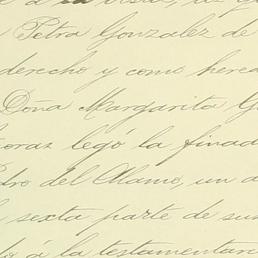 Petra Gonzalez de
derecho y como hered
Doña Margarita G
legó la finad
del Alamo, un a
sexta parte de su
á la testamentar